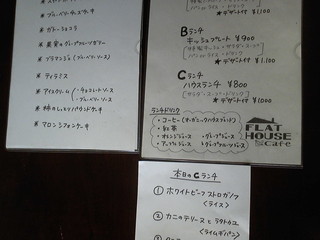 * ブルーベリーチーズケーキ
* ガトーショコラ
* ブラマンジェ (ブルーベリーソース)
* ティラミス
* アイスクリーム (・チョコレートソース
・ブルーベリーソース)
* マロンシフォンケーキ
Bランチ
キッシュプレート ¥900
★ デザート付 ¥1,100
Cランチ
ハウスランチ ¥800
★ デザート付 ¥1000
ランチドリンク
・コーヒー (オーガニックハウスブレンド)
・紅茶
・オレンジジュース ・グレープジュース
・アップルジュース ・グレープフルーツジュース
FLAT
HOUSE
Cafe
本日のCランチ
① ホワイトビーフストロガノフ
(ライス)
② カニのテリーヌとラタトゥユ
(ライムギパン)